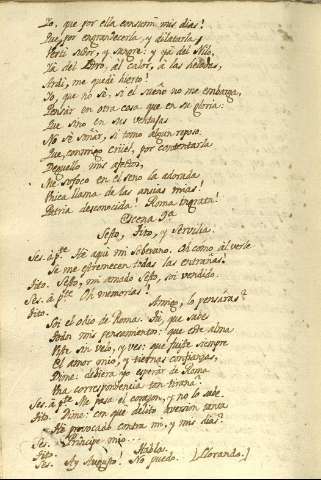 Yo, que por ella consumí mis dias!
Que, por engrandecerla, y dilatarla,
Vertí sudor, y sangre: y yá del Nilo,
Yá del Istro, al calor, â las heladas,
Ardí, me quedé hierto!
Yo, que no sé, si el sueño no me embarga,
Pensár en otra cosa que en su gloria:
Que sino en sus ventajas
No sé soñár, si tomo algun reposo.
Que, conmigo cruel, por contentarla
Deguello mis afectos,
Me sofoco en el seno la adorada
Unica llama de las ansias mias!
Patria desconocida! Roma ingrata!
Escena 9ª
Sesto, Tito, y Servilia.
Ses. á pte. He aqui mi Soberano. Oh como al verle
Se me estremecen todas las entrañas!
Tito. Sesto, mi amado Sesto, soi vendido.
Ses. á pte. Oh memorias!
Tito. Amigo, lo pensáras?
Soi el odio de Roma. Tú, que sabes
Todos mis pensamientos: que esta alma
Viste sin velo, y ves: que fuiste siempre
El amor mio, y tiernas confianzas,
Dime: debiera yo esperar de Roma
Una correspondencia tan tirana?
Ses. á pte. Me pasa el corazon, y no lo sabe.
Tito. Dime: con que delito aversion tanta
He provocado contra mi, y mis dias?
Ses. Principe mio...
Tito. Habla.
Ses. Ay Augusto! No puedo. (Llorando.)